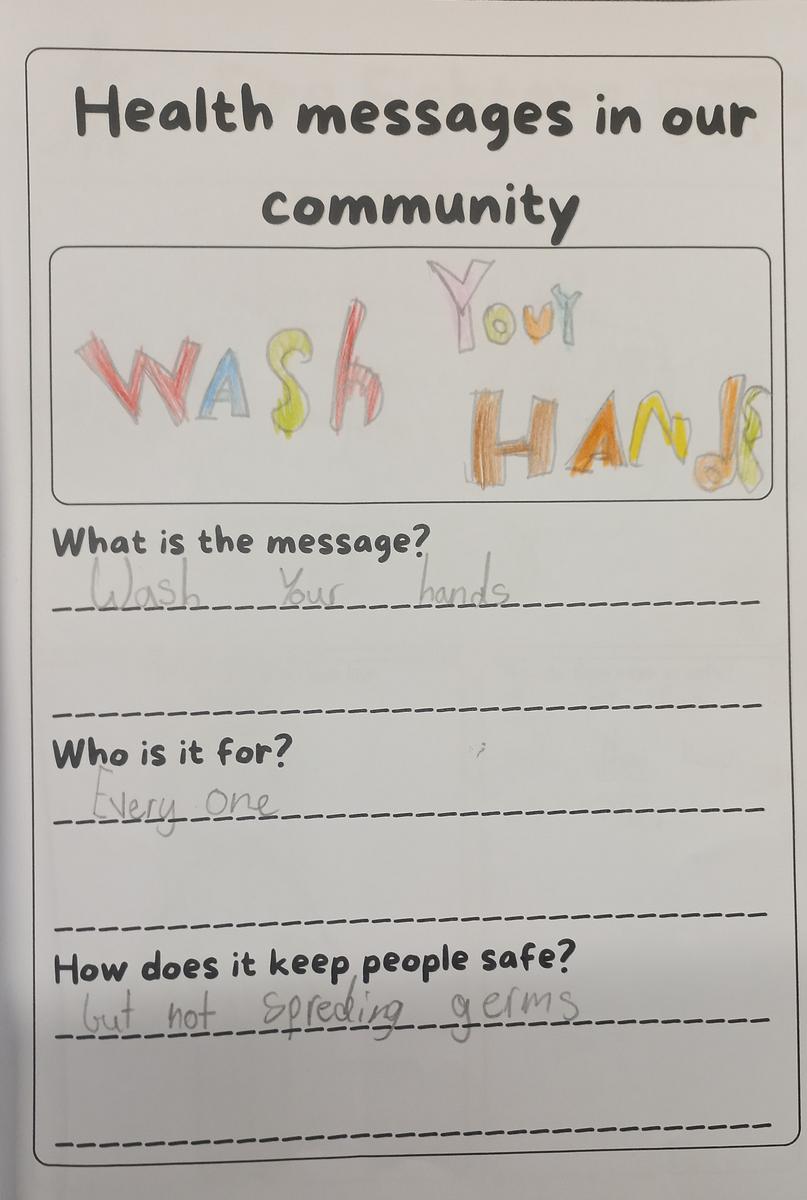 Health messages in our
community
WASh Your
HANds
What is the message?
Wash Your hands
Who is it for?
Every one
How does it keep people safe?
but not Spreding germs